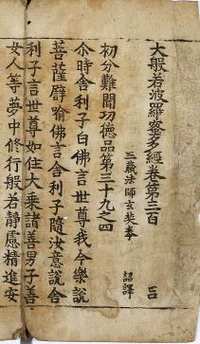 大般若波羅蜜多經卷第三百 呂
三藏法師玄奘奉 詔譯
初分難聞功德品第三十九之四
尒時舍利子白佛言世尊我今樂說
菩薩譬喻佛言舍利子隨汝意說舍
利子言世尊如住大乘諸善男子善
女人等夢中修行般若靜慮精進安